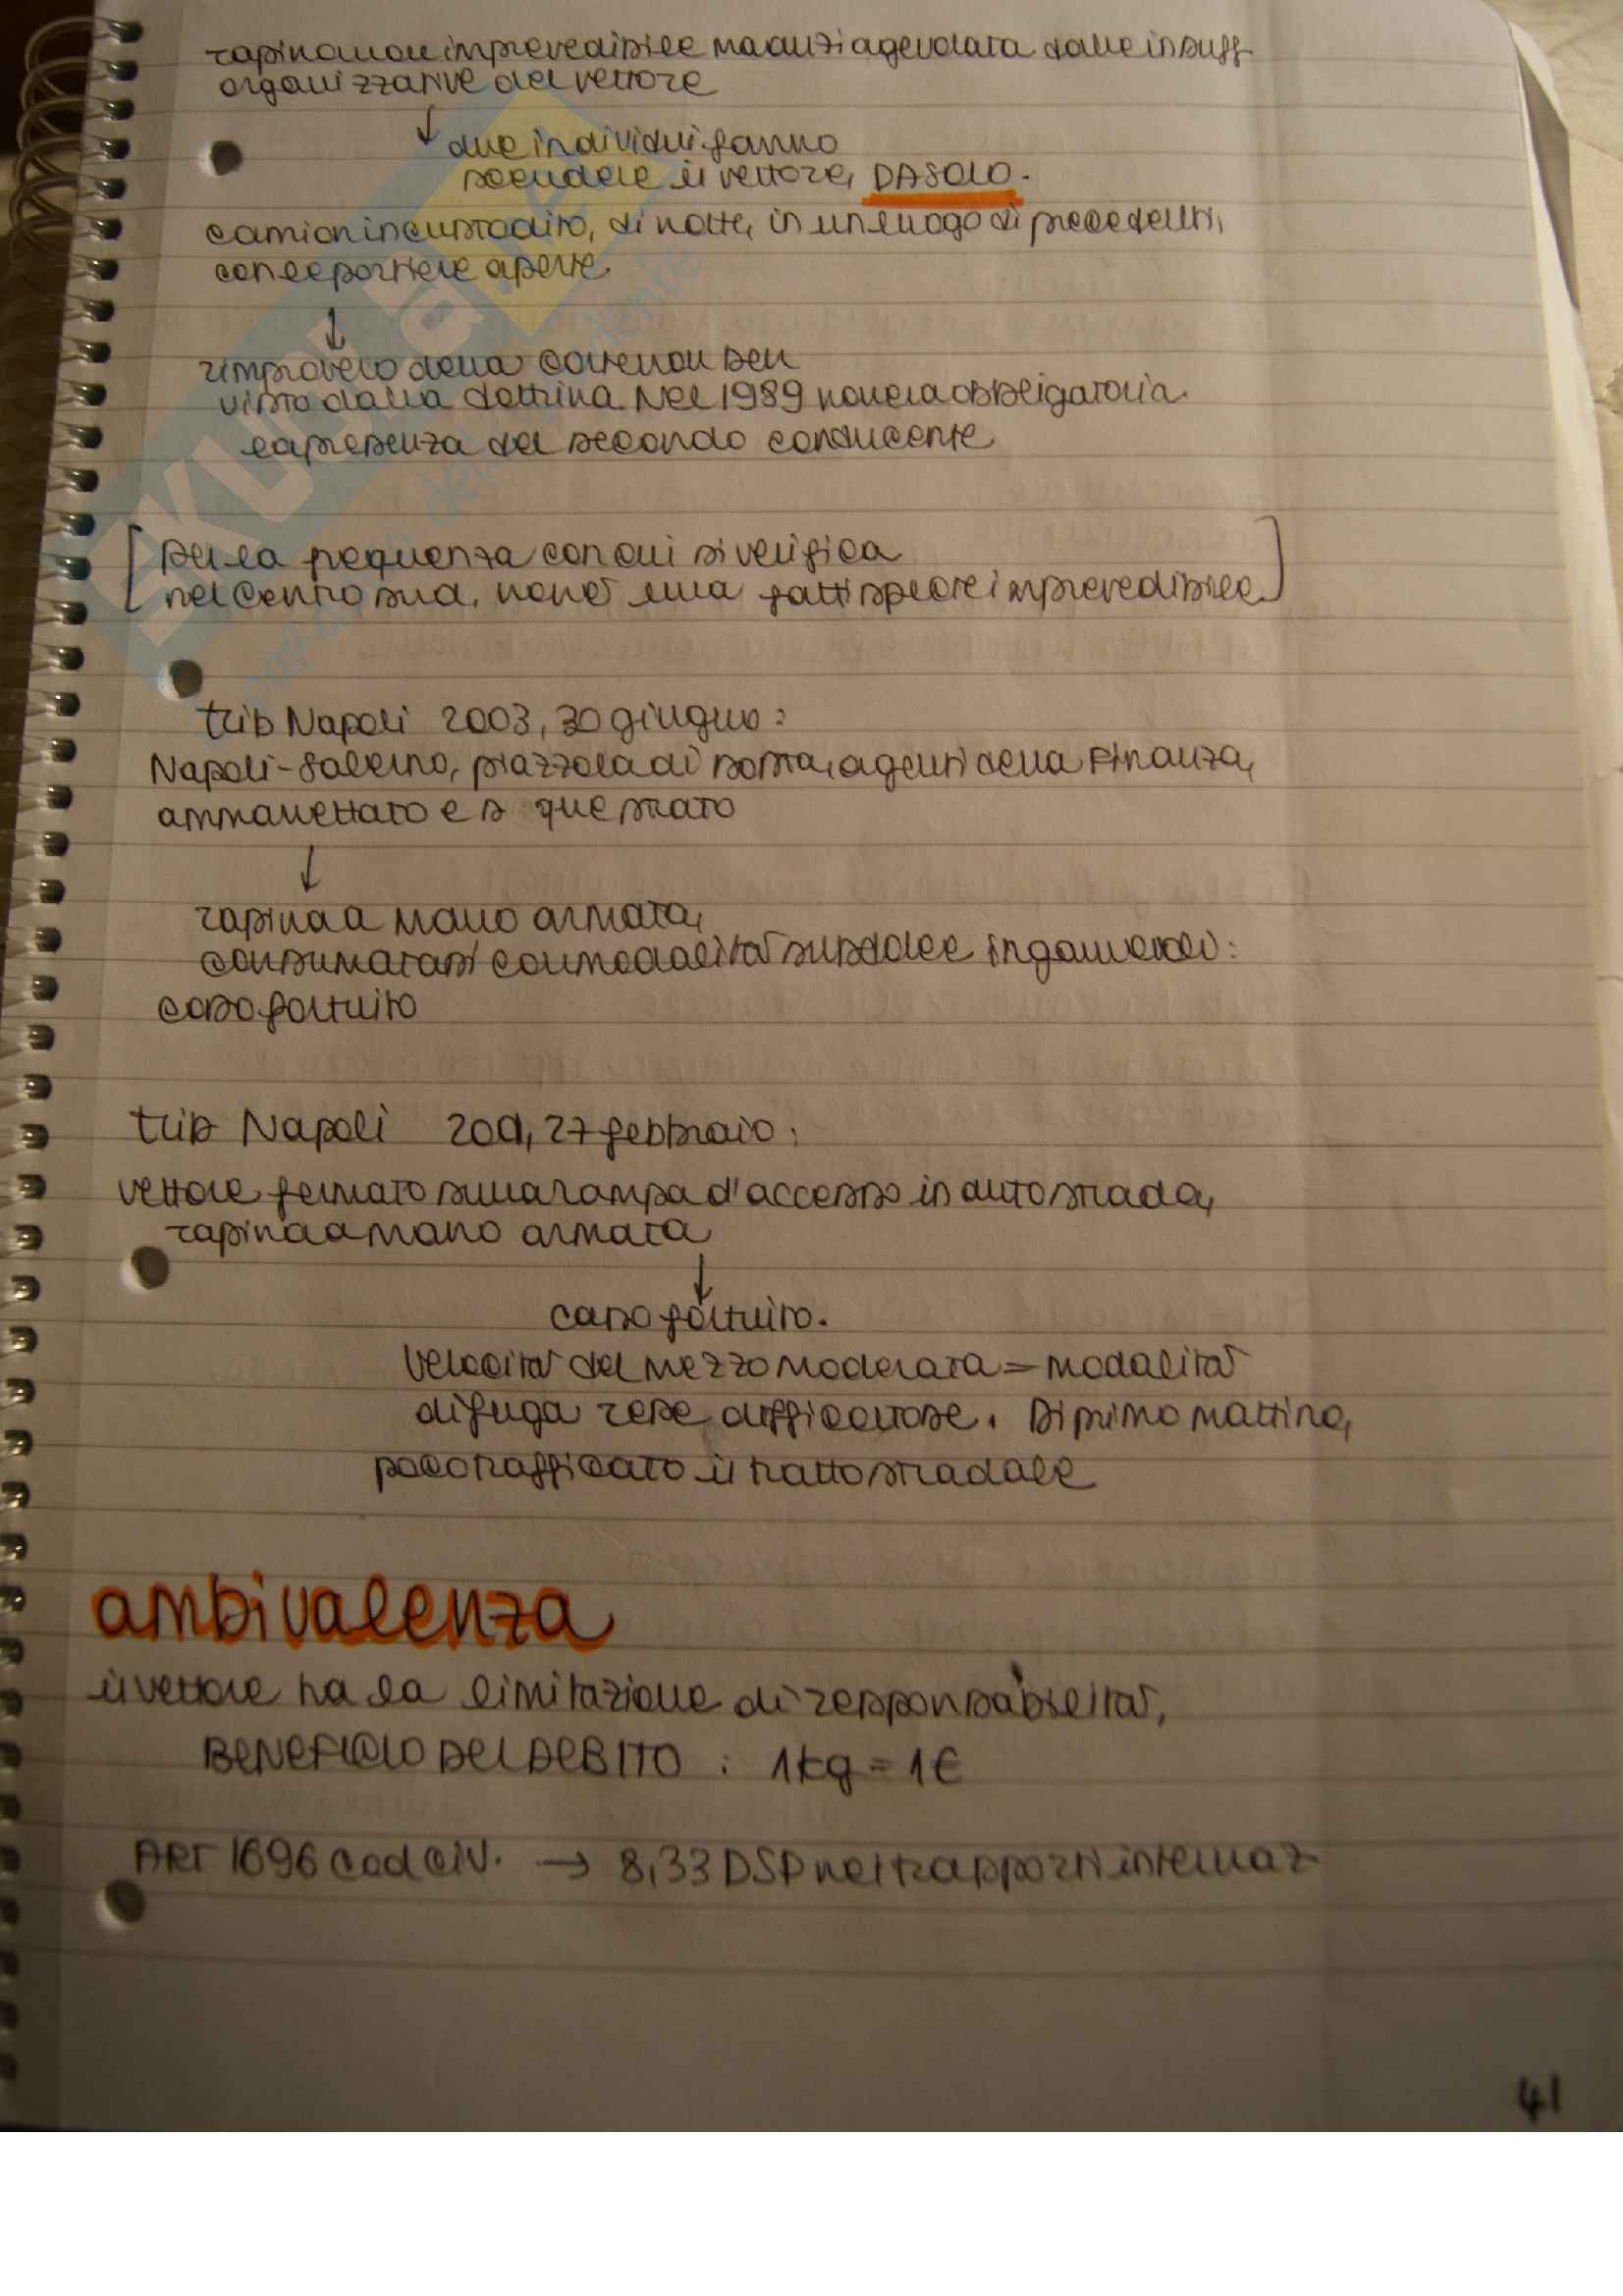 rapina non imprevedibile ma anzi agevolata dalle insuff
organizzative del vettore
↓ due individui fanno
scendere il vettore, DA SOLO.
camion incustodito, di notte, in un luogo di precedenti,
con le portiere aperte
↓
rimprovero della Corte non ben
visto dalla dottrina. Nel 1989 non era obbligatoria
la presenza del secondo conducente
[per la frequenza con cui si verifica
nel centro sud, non è una fattispecie imprevedibile]
trib Napoli 2003, 30 giugno:
Napoli-Salerno, piazzola di sosta, agenti della Finanza,
ammanettato e sequestrato
↓
rapina a mano armata,
consumatasi con modalità subdole ingannevoli:
caso fortuito
trib Napoli 2001, 27 febbraio:
vettore fermato sulla rampa d'accesso in autostrada,
rapina a mano armata
↓
caso fortuito.
Velocità del mezzo moderata = modalità
di fuga rese difficoltose. Di primo mattino,
poco trafficato il tratto stradale
ambivalenza
il vettore ha la limitazione di responsabilità,
BENEFICIO DEL DEBITO: 1kg = 1€
ART 1696 cod civ. → 8,33 DSP nei trapporti internaz
41